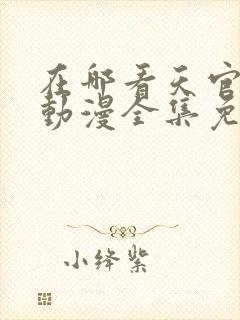 在哪看天官
動漫全集免
小绛紫